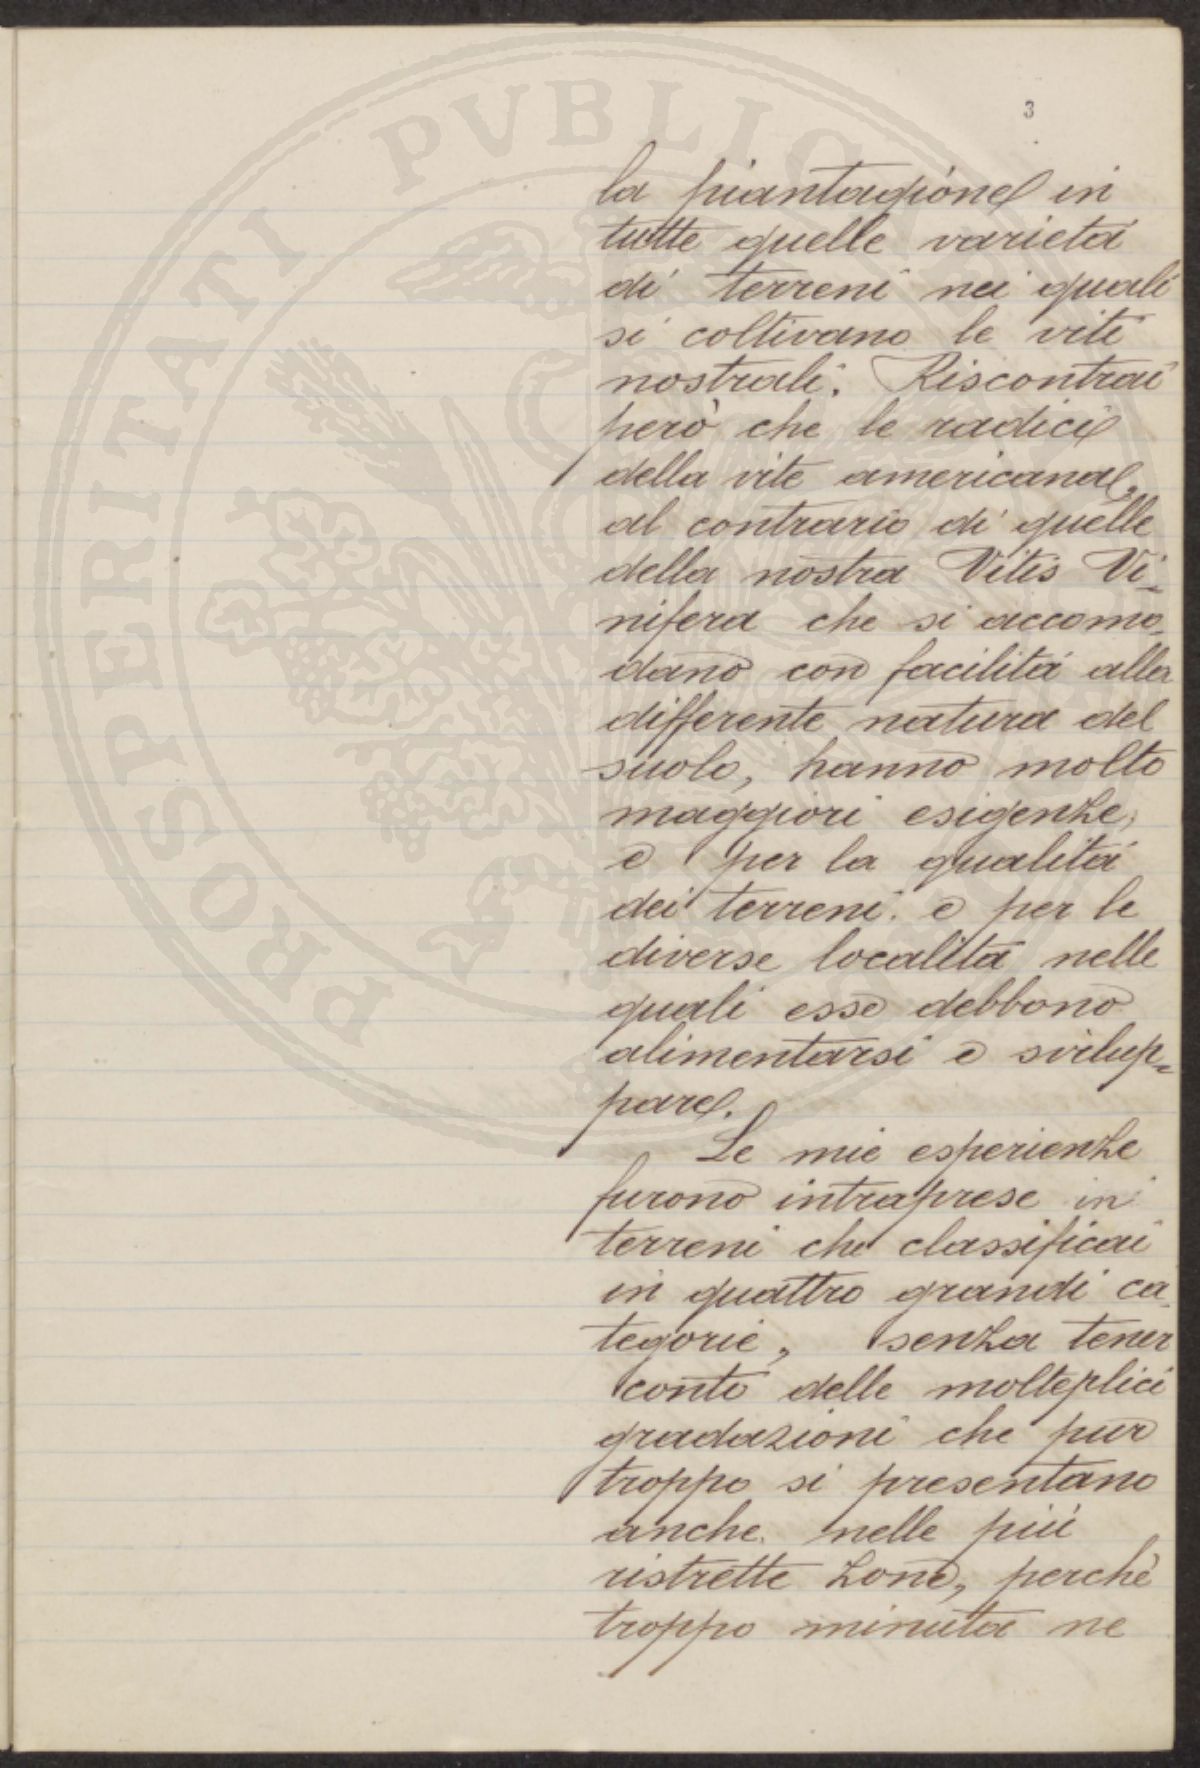 3
la piantagione in
tutte quelle varietà
di terreni nei quali
si coltivano le viti
nostrali. Riscontrai
però che le radici
della vite americana,
al contrario di quelle
della nostra Vitis Vi-
nifera che si accomo-
dano con facilità alla
differente natura del
suolo, hanno molto
maggiori esigenze,
e per la qualità
dei terreni e per le
diverse località nelle
quali esse debbono
alimentarsi e svilup-
pare.
Le mie esperienze
furono intraprese in
terreni che classificai
in quattro grandi ca-
tegorie, senza tener
conto delle molteplici
gradazioni che pur
troppo si presentano
anche nelle più
ristrette zone, perchè
troppo minuta ne
PROSPERITATI PVBLICAE